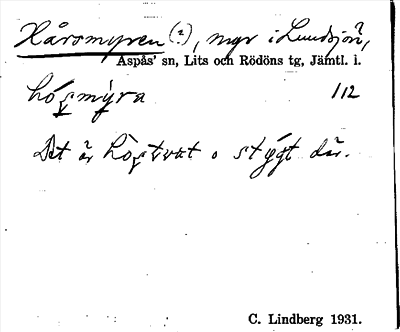 Hårsmyren (?), myr i Lundsjön,
Aspås' sn, Lits och Rödöns tg, Jämtl. i.
1/12
Det är o stýgt där.
C. Lindberg 1931.